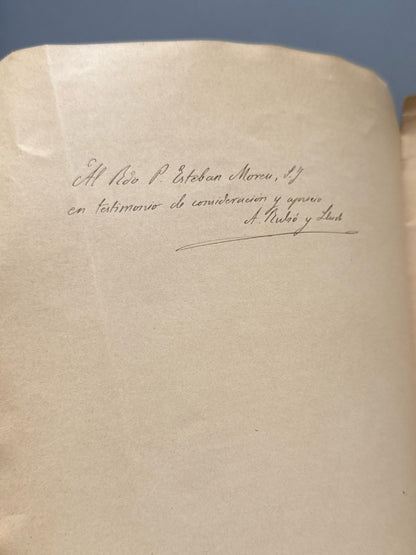 Al Rdo P. Esteban Moreu, S.J
en testimonio de consideración y aprecio
A. Rubió y Lluch